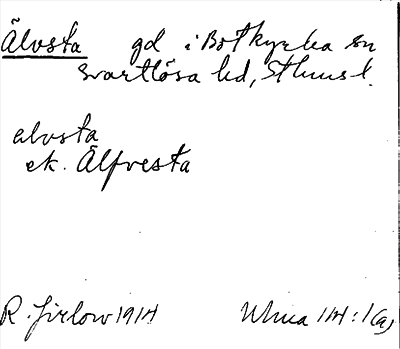 Älvsta gd i Botkyrka sn
Svartlösa hd, Sthms l.
alvsta
ek. Älfvesta
R. Jirlow 1914
Ulma 114:1(a)